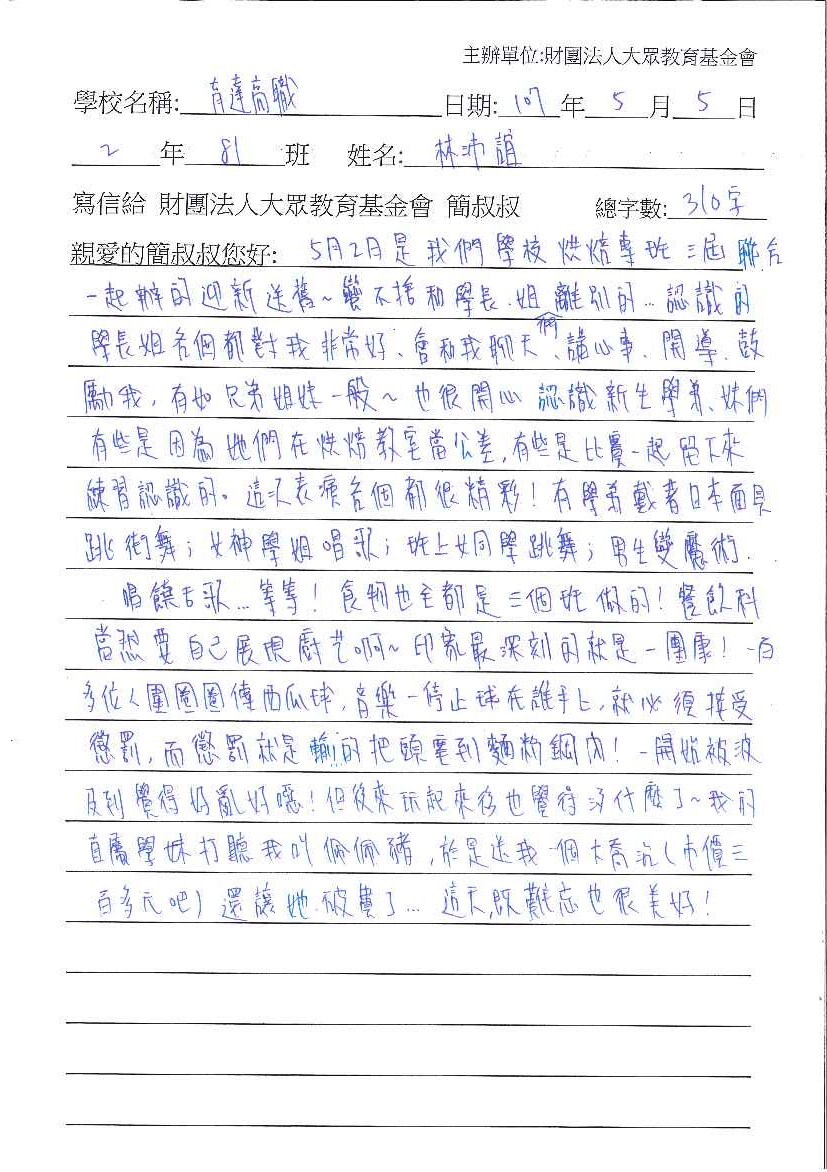 主辦單位:財團法人大眾教育基金會
學校名稱: 育達高職 日期: 107 年 5 月 5 日
2 年 81 班 姓名: 林沛誼
寫信給 財團法人大眾教育基金會 簡叔叔 總字數: 310字
親愛的簡叔叔您好: 5月2日是我們學校烘焙專班三屆聯合
一起辦的迎新送舊~蠻不捨和學長、姐離別的…認識的
學長姐各個都對我非常好、會和我們聊天、講心事、開導、鼓
勵我，有如兄弟姐妹一般~也很開心認識新生學弟、妹們
有些是因為她們在烘焙教室當公差，有些是比賽一起留下來
練習認識的。這次表演各個都很精彩！有學弟戴著日本面具
跳街舞；女神學姐唱歌；班上女同學跳舞；男生變魔術、
唱饒舌歌…等等！食物也全都是三個班做的！餐飲科
當然要自己展現廚艺啊~印象最深刻的就是一團康！一百
多位人圍圈圈傳西瓜球，音樂一停止球在誰手上，就必須接受
懲罰，而懲罰就是輸的把頭埋到麵粉鋼內！一開始被波
及到覺得好亂好噁！但後來玩起來後也覺得沒什麼了~我的
直屬學妹打聽我叫佩佩豬，於是送我一個大喬治(市價三
百多元吧)還讓她破費了…這天，既難忘也很美好！